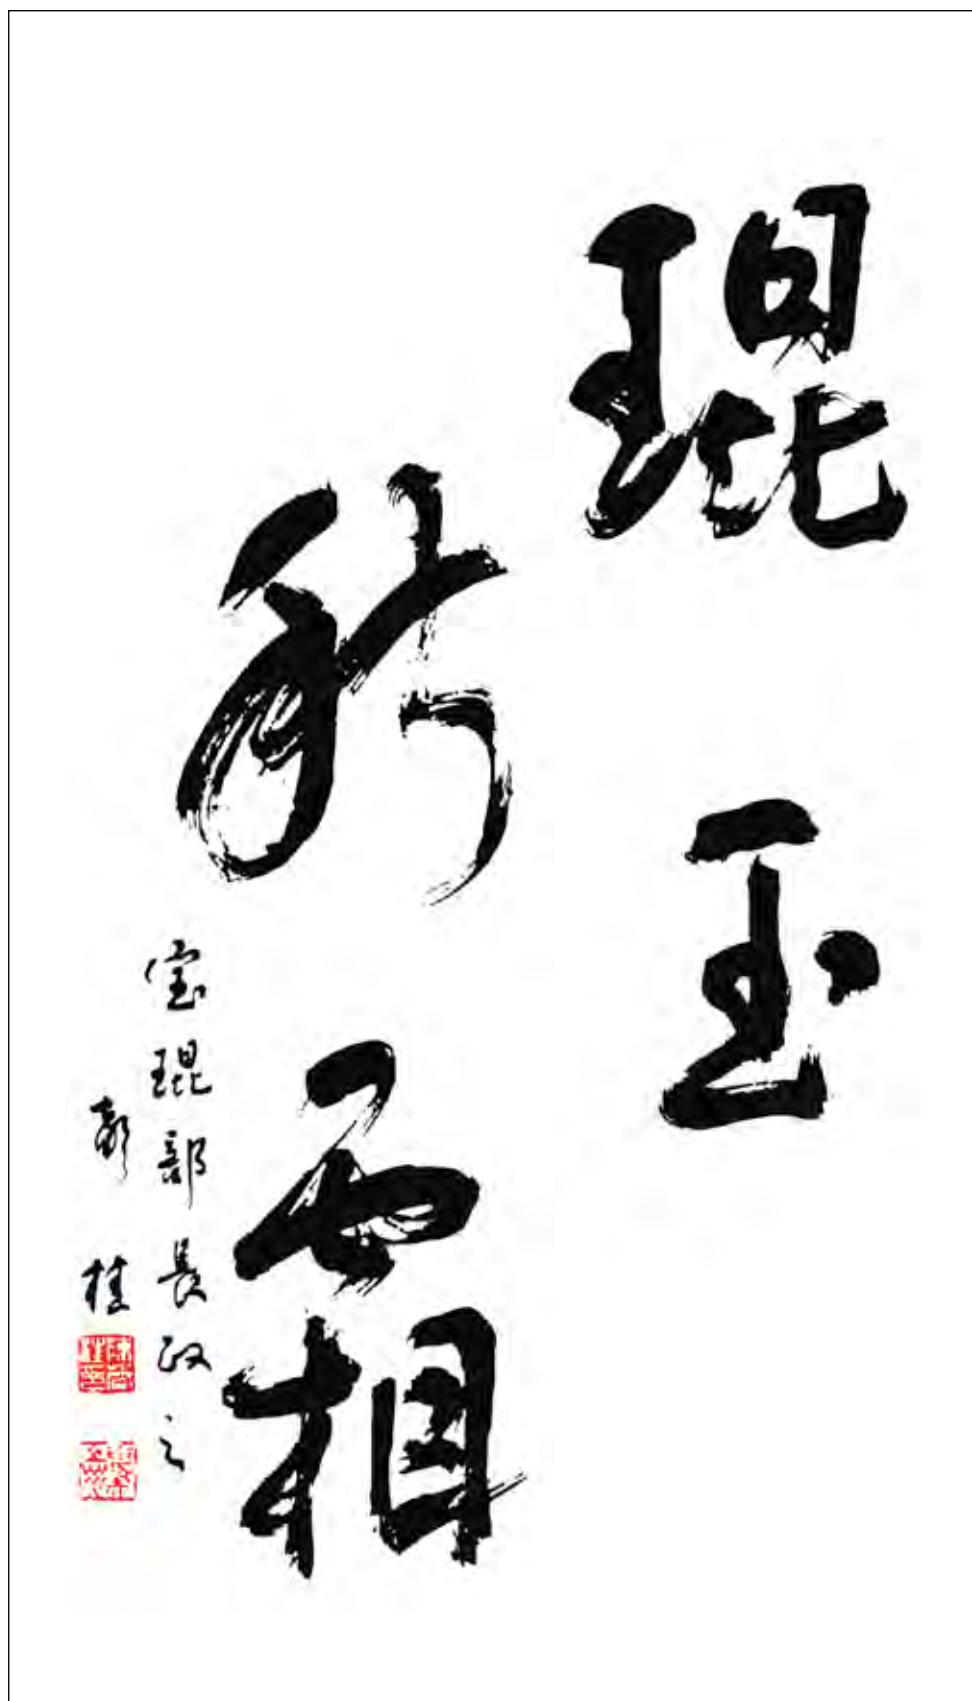 琨玉
秋霜
宝琨部長政之
桂